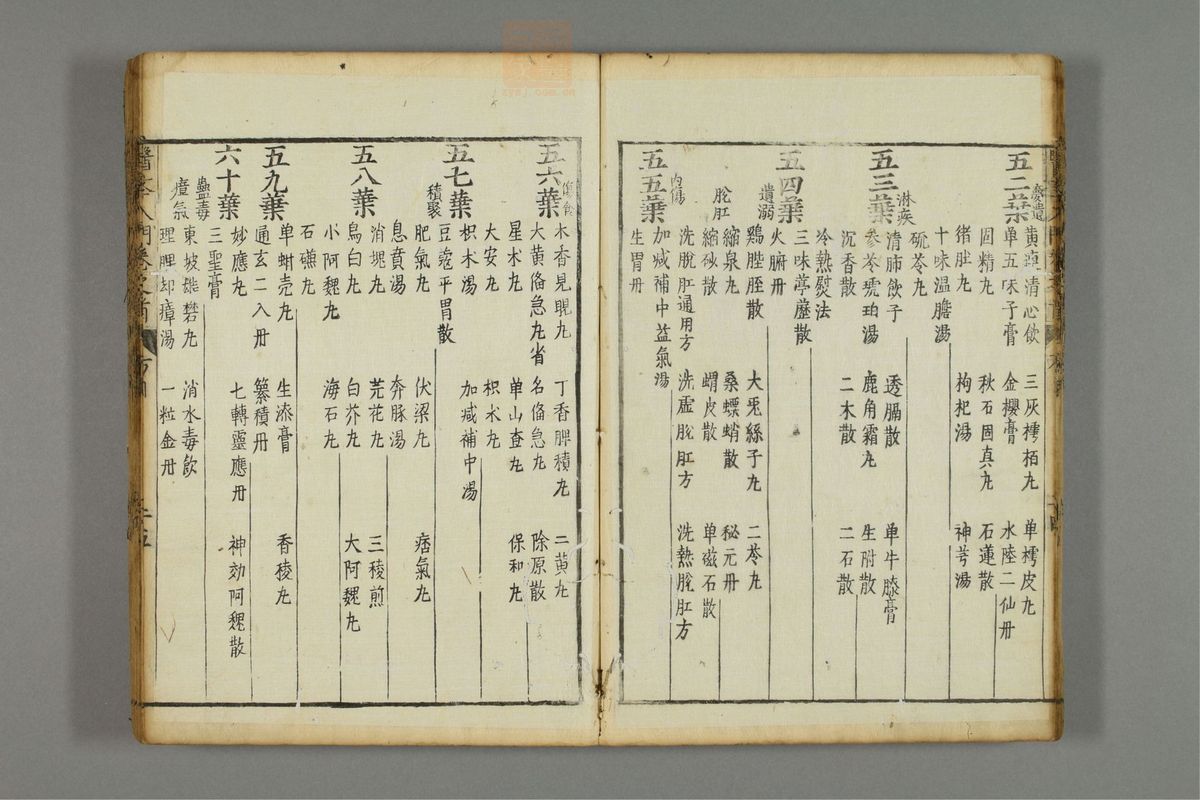 五二葉
夢遺
黄連清心飲 三灰樗栢丸 单樗皮丸
单五味子膏 金櫻膏 水陸二仙丹
固精丸 秋石固真丸 石蓮散
猪肚丸 枸杞湯 神芎湯
十味温膽湯
硫苓丸
五三葉
淋疾
清肺飲子 透膈散 单牛膝膏
参苓琥珀湯 鹿角霜丸 生附散
沉香散 二木散 二石散
冷熱熨法
三味葶藶散
五四葉
火腑丹
遺溺
鷄膍胵散 大兎絲子丸 二苓丸
縮泉丸 桑螵蛸散 秘元丹
脱肛
縮砂散 蝟皮散 单磁石散
洗脫肛通用方 洗虚脫肛方 洗熱脫肛方
五五葉
内傷
加减補中益氣湯
生胃丹
五六葉
傷食
木香見睍丸 丁香脾積丸 二黄丸
大黄俻急丸省名俻急丸 除原散
星术丸 单山查丸 保和丸
大安丸 枳术丸
五七葉
枳术湯 加减補中湯
豆蔲平胃散
積聚
肥氣丸 伏梁丸 痞氣丸
息賁湯 奔豚湯
五八葉
消塊丸 芫花丸 三稜煎
烏白丸 白芥丸 大阿魏丸
小阿魏丸 海石丸
石礆丸
五九葉
单蚶壳丸 生添膏 香稜丸
通玄二八丹 纂積丹
六十葉
妙應丸 七轉靈應丹 神効阿魏散
三聖膏
蠱毒
東坡雄礬丸 消水毒飲
瘴氣
理脾却瘴湯 一粒金丹